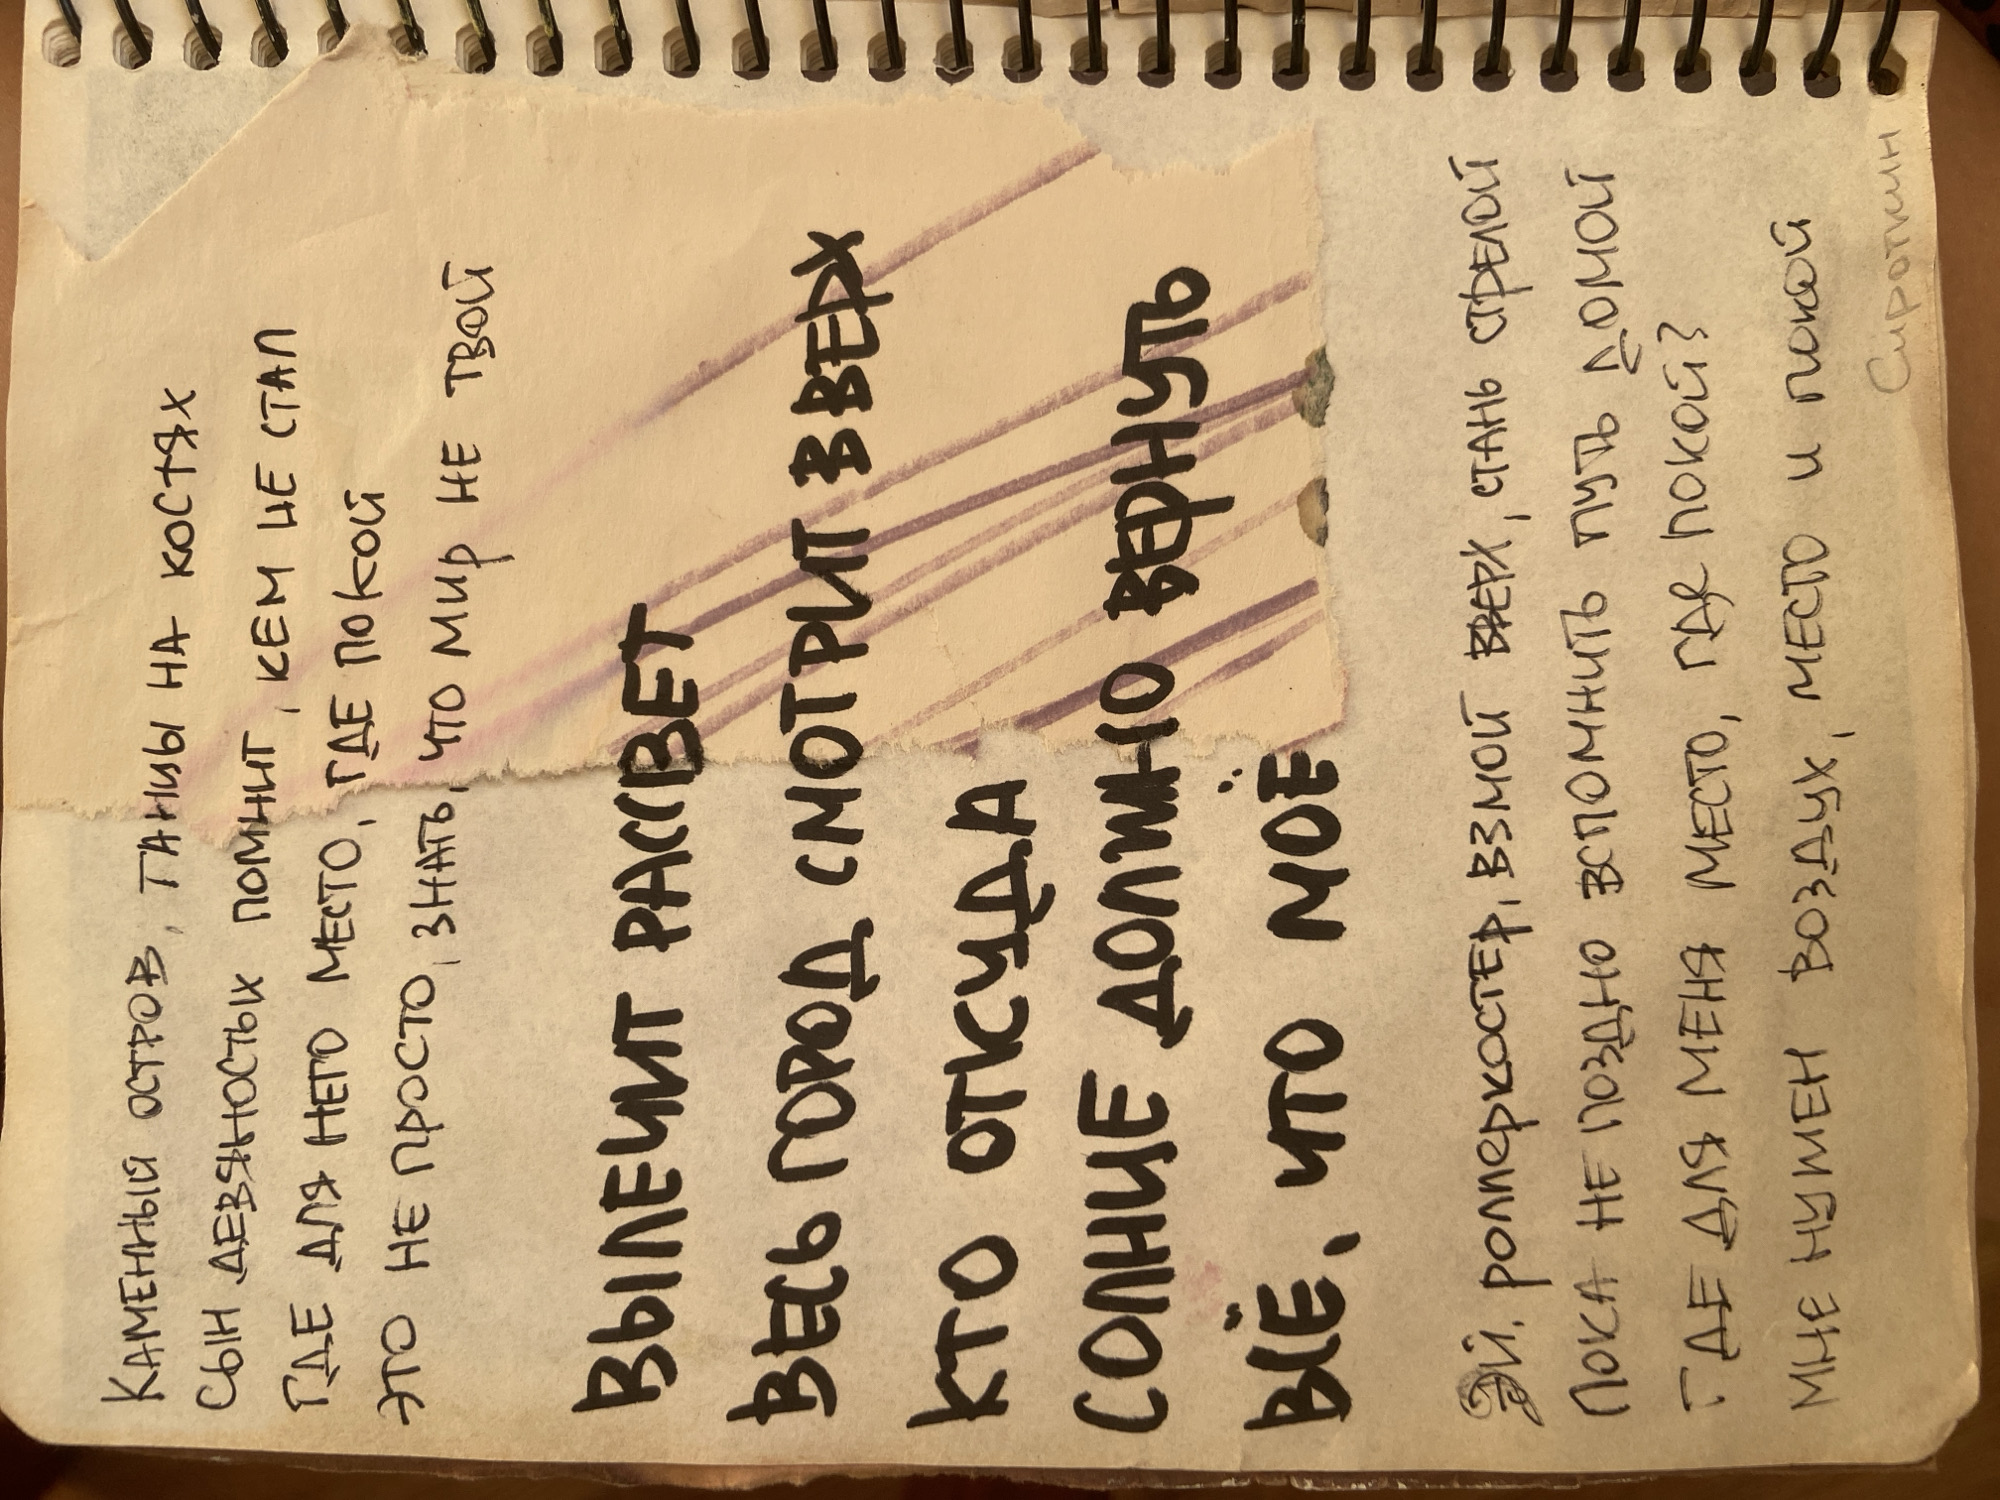 Каменный остров, танцы на костях
Сын девяностых помнит, кем не стал
Где для него место, где покой
Это не просто, знать, что мир не твой
ВЫЛЕЧИТ РАССВЕТ
ВЕСЬ ГОРОД СМОТРИТ ВВЕРХ
КТО ОТКУДА
СОЛНЦЕ ДОЛЖНО ВЕРНУТЬ
ВСЁ, ЧТО МОЁ
Эй, роллеркостер, взмой вверх, стань стрелой
Пока не поздно вспомнить путь домой
Где для меня место, где покой?
Мне нужен воздух, место и покой
Сироткин